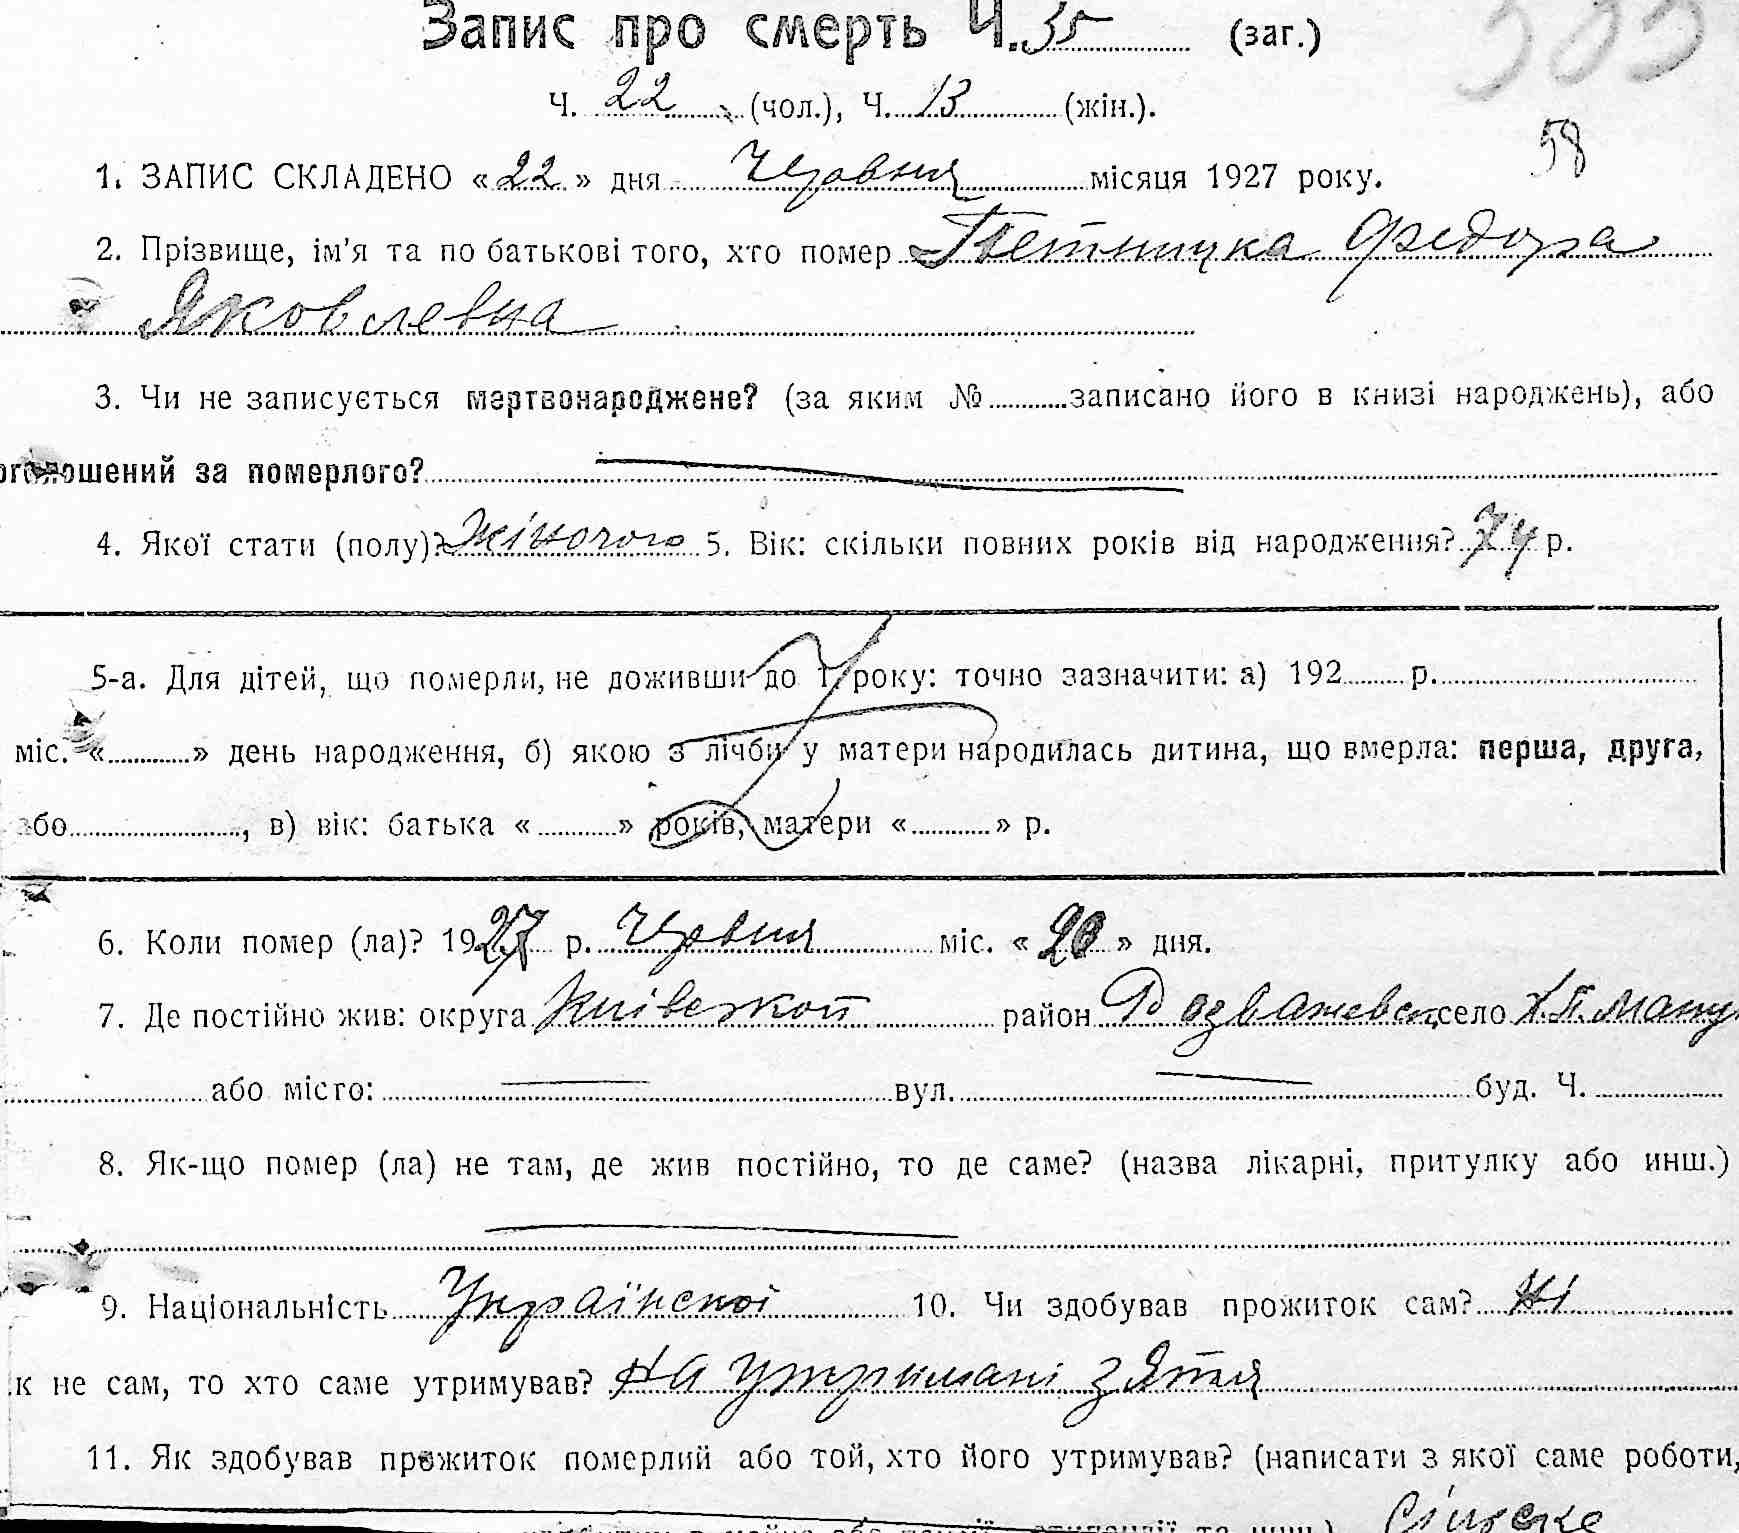 Запис про смерть Ч. 35 (заг.)
Ч. 22 (чол.), Ч. 13 (жін.).
58
1. ЗАПИС СКЛАДЕНО «22» дня Червня місяця 1927 року.
2. Прізвище, ім'я та по батькові того, хто помер Федора
Яковлевна
3. Чи не записується мертвонароджене? (за яким № записано його в книзі народжень), або
оголошений за померлого?
4. Якої стати (полу)? Жіночого 5. Вік: скільки повних років від народження? 74 р.
5-а. Для дітей, що померли, не доживши до 1 року: точно зазначити: а) 192 р.
міс. « » день народження, б) якою з лічби у матери народилась дитина, що вмерла: перша, друга,
або , в) вік: батька « » років, матери « » р.
6. Коли помер (ла)? 1927 р. Червня міс. «20» дня.
7. Де постійно жив: округа Київской район Розважевск село Х.П.
або місто: вул. буд. Ч.
8. Як-що помер (ла) не там, де жив постійно, то де саме? (назва лікарні, притулку або инш.)
9. Національність Українскої 10. Чи здобував прожиток сам? Ні
к не сам, то хто саме утримував? На утримані зятя
11. Як здобував прожиток померлий або той, хто його утримував? (написати з якої саме роботи,